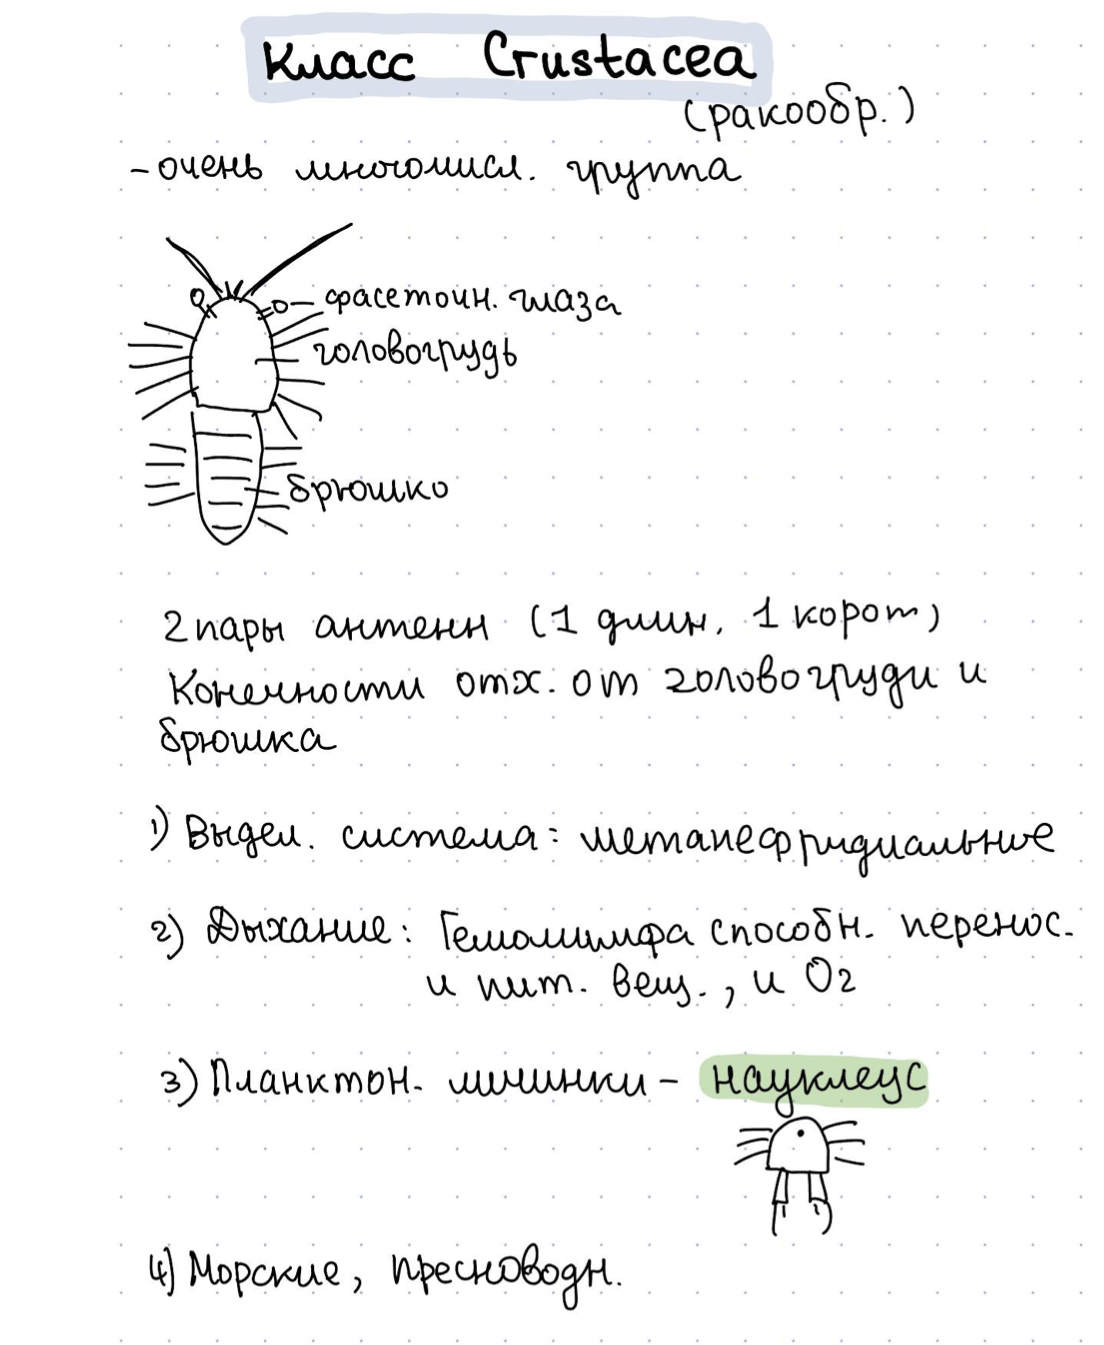 Класс Crustacea
(ракообр.)
- очень многочисл. группа
фасеточн. глаза
головогрудь
брюшко
2 пары антенн (1 длин, 1 корот)
Конечности отх. от головогруди и
брюшка
1) Выдел. система: метанефридиальное
2) Дыхание: Гемолимфа способн. перенос.
и пит. вещ., и O2
3) Планктон. личинки - науклеус
4) Морские, пресноводн.